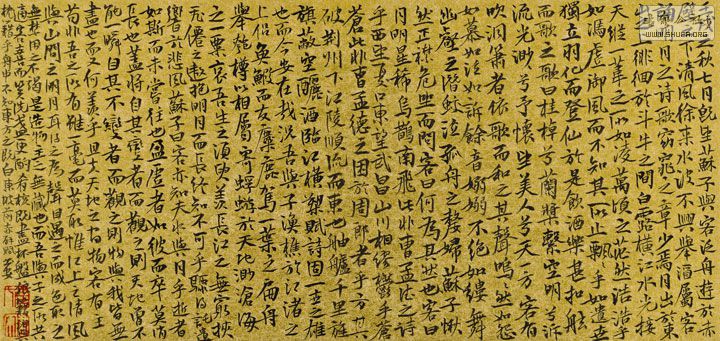 之秋七月既望蘇子與客泛舟遊於赤
之下清風徐來水波不興舉酒屬客
明月之詩歌窈窕之章少焉月出於東
山之上徘徊於斗牛之間白露橫江水光接
天縱一葦之所如凌萬頃之茫然浩浩乎
如馮虛御風而不知其所止飄飄乎如遺世
獨立羽化而登仙於是飲酒樂甚扣舷
而歌之歌曰桂棹兮蘭槳擊空明兮泝
流光渺渺兮予懷望美人兮天一方客有
吹洞簫者倚歌而和之其聲嗚嗚然如怨
如慕如泣如訴餘音嫋嫋不絕如縷舞
幽壑之潛蛟泣孤舟之嫠婦蘇子愀
然正襟危坐而問客曰何為其然也客曰
月明星稀烏鵲南飛此非曹孟德之詩
乎西望夏口東望武昌山川相繆鬱乎蒼
蒼此非曹孟德之困於周郎者乎方其
破荊州下江陵順流而東也舳艫千里旌
旗蔽空釃酒臨江橫槊賦詩固一世之雄
也而今安在哉況吾與子漁樵於江渚之
上侶魚鰕而友麋鹿駕一葉之扁舟
舉匏樽以相屬寄蜉蝣於天地渺滄海
之一粟哀吾生之須臾羨長江之無窮挾
飛僊以遨遊抱明月而長終知不可乎驟得託遺
響於悲風蘇子曰客亦知夫水與月乎逝者
如斯而未嘗往也盈虛者如彼而卒莫消
長也蓋將自其變者而觀之則天地曾不
能瞬自其不變者而觀之則物與我皆無
盡也而又何羨乎且夫天地之間物各有主
苟非吾之所有雖一毫而莫取惟江上之清風
與山間之明月耳得之而為聲目遇之而成色取之
無禁用之不竭是造物者之無盡藏也而吾與子之所共
客喜而笑洗盞更酌肴核既盡杯盤
枕藉乎舟中不知東方之既白 東坡前赤壁賦
WWW.SHUFA.ORG